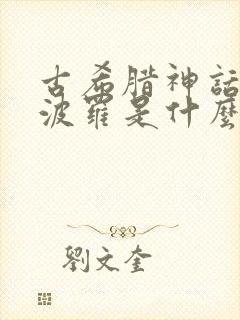 古希腊神話
波羅是什麼
劉文奎